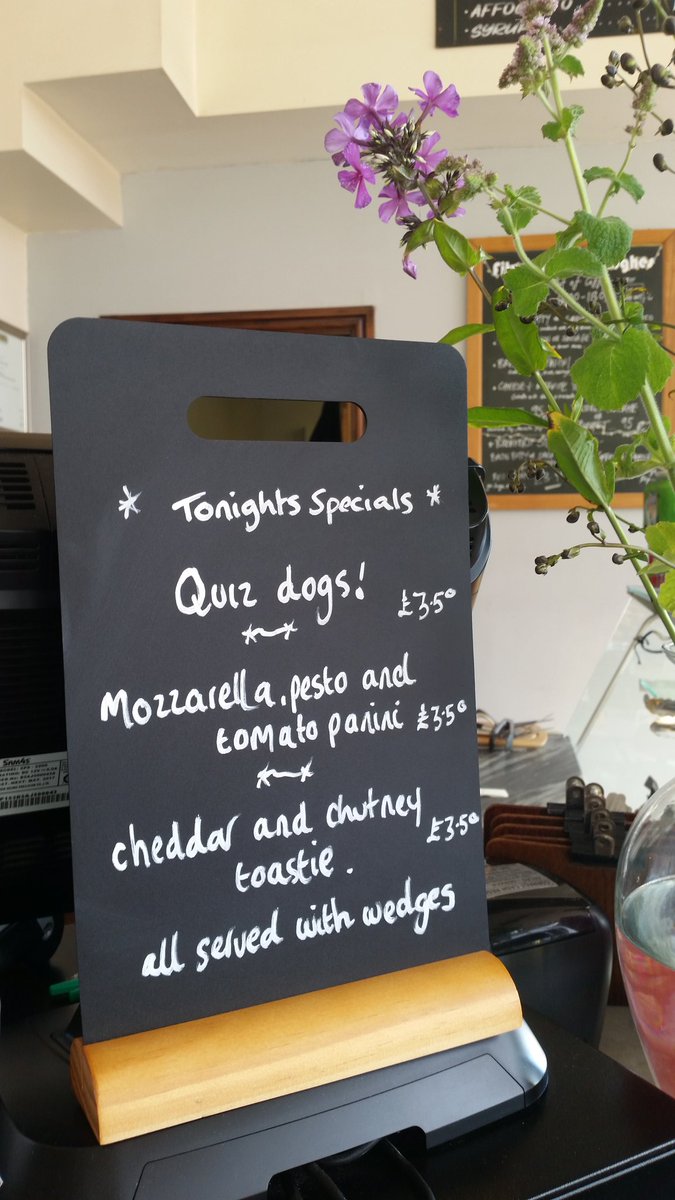 AFFOGATO
SYRUP
* Tonights Specials *
Quiz dogs! £3.50
Mozzarella, pesto and
tomato panini £3.50
cheddar and chutney £3.50
toastie.
all served with wedges
sam4s